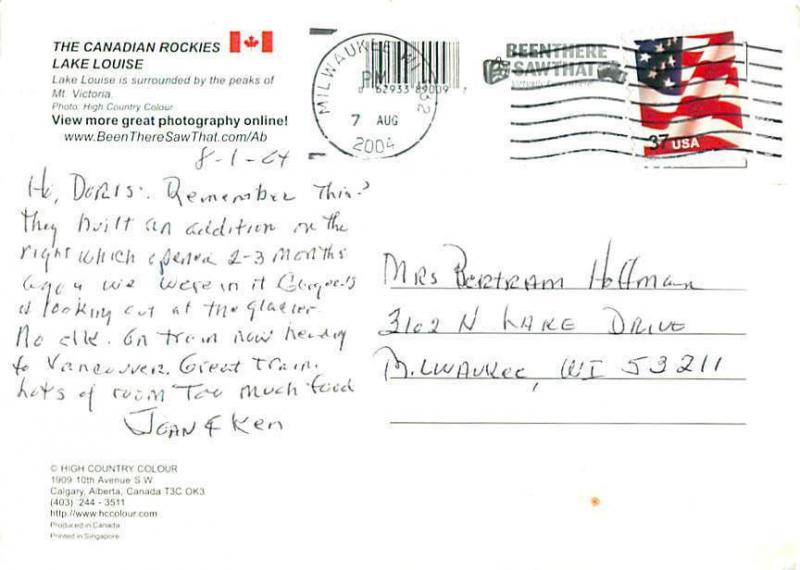 THE CANADIAN ROCKIES
LAKE LOUISE
Lake Louise is surrounded by the peaks of
Mt. Victoria.
Photo: High Country Colour
View more great photography online!
www.BeenThereSawThat.com/Ab
MILWAUKEE WI 532
PM
7 AUG
2004
0 62933 89009 7
BEENTHERE
SAWTHAT
37 USA
8-1-04
Hi, Doris. Remember This?
They built an addition on the
right which opened 2-3 months
ago & we were in it Gorgeous
is looking out at the glacier.
No elk. On train now heading
to Vancouver. Great Train.
Lots of room Too much food
Joan & Ken
Mrs Bertram Hoffman
3102 N Lake Drive
Milwaukee, WI 53211
© HIGH COUNTRY COLOUR
1909 10th Avenue S.W.
Calgary, Alberta, Canada T3C OK3
(403) 244 - 3511
http://www.hccolour.com
Produced in Canada
Printed in Singapore